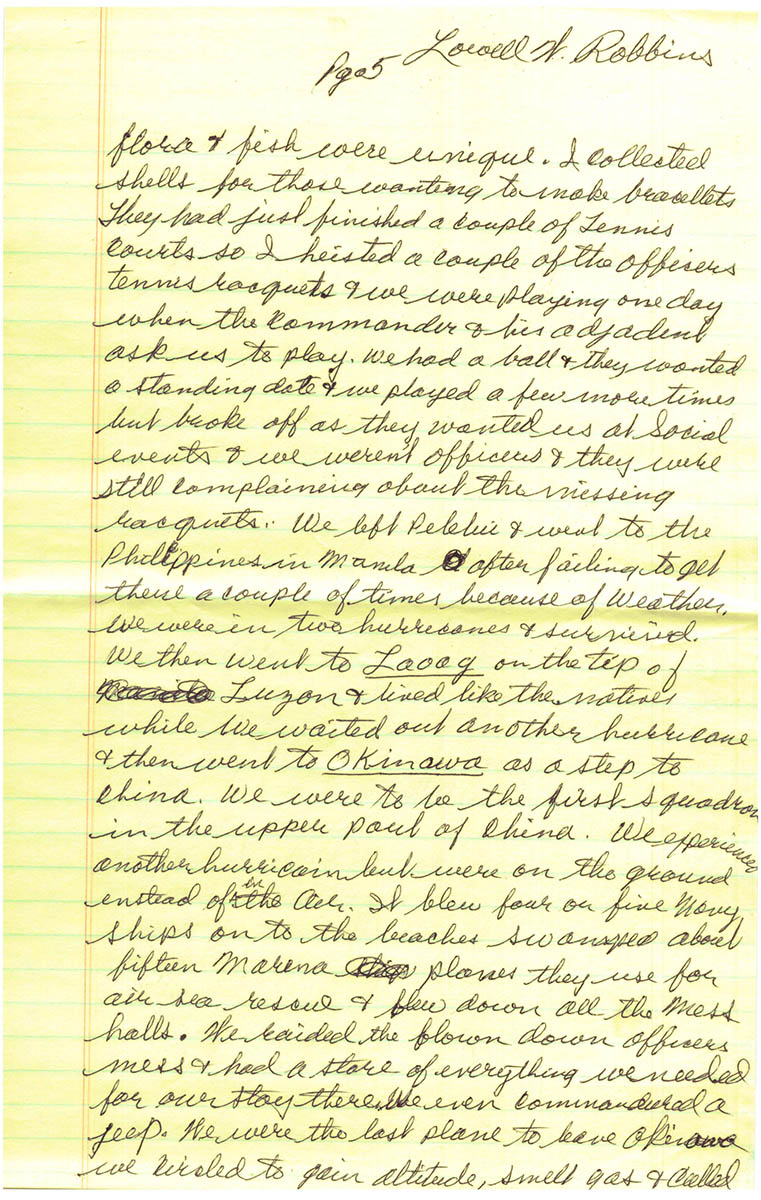 Lowell W. Robbins
Pg 05
flora & fish were unique. I collected
shells for those wanting to make bracellets
They had just finished a couple of Tennis
Courts so I heisted a couple of the officers
tennis racquets & we were playing one day
when the Commander & his adjadent
ask us to play. We had a ball & they wanted
a standing date & we played a few more times
but broke off as they wanted us at Social
events & we werent officers & they were
still complaining about the missing
racquets. We left Peleliu & went to the
Philippines in Manila after failing to get
there a couple of times because of Weather.
We were in two hurricanes & survived.
We then went to Laoag on the tip of
Luzon & lived like the natives
while We waited out another hurricane
& then went to OKinawa as a step to
China. We were to be the first squadron
in the upper part of China. We experienced
another hurricain but were on the ground
instead of in the Air. It blew four or five Navy
ships on to the beaches swamped about
fifteen Marina planes they use for
air sea rescue & blew down all the Mess
halls. We raided the blown down officers
mess & had a store of everything we needed
for our stay there. We even commandured a
jeep. We were the last plane to leave Okinawa
we circled to gain altitude, smelt gas & Called